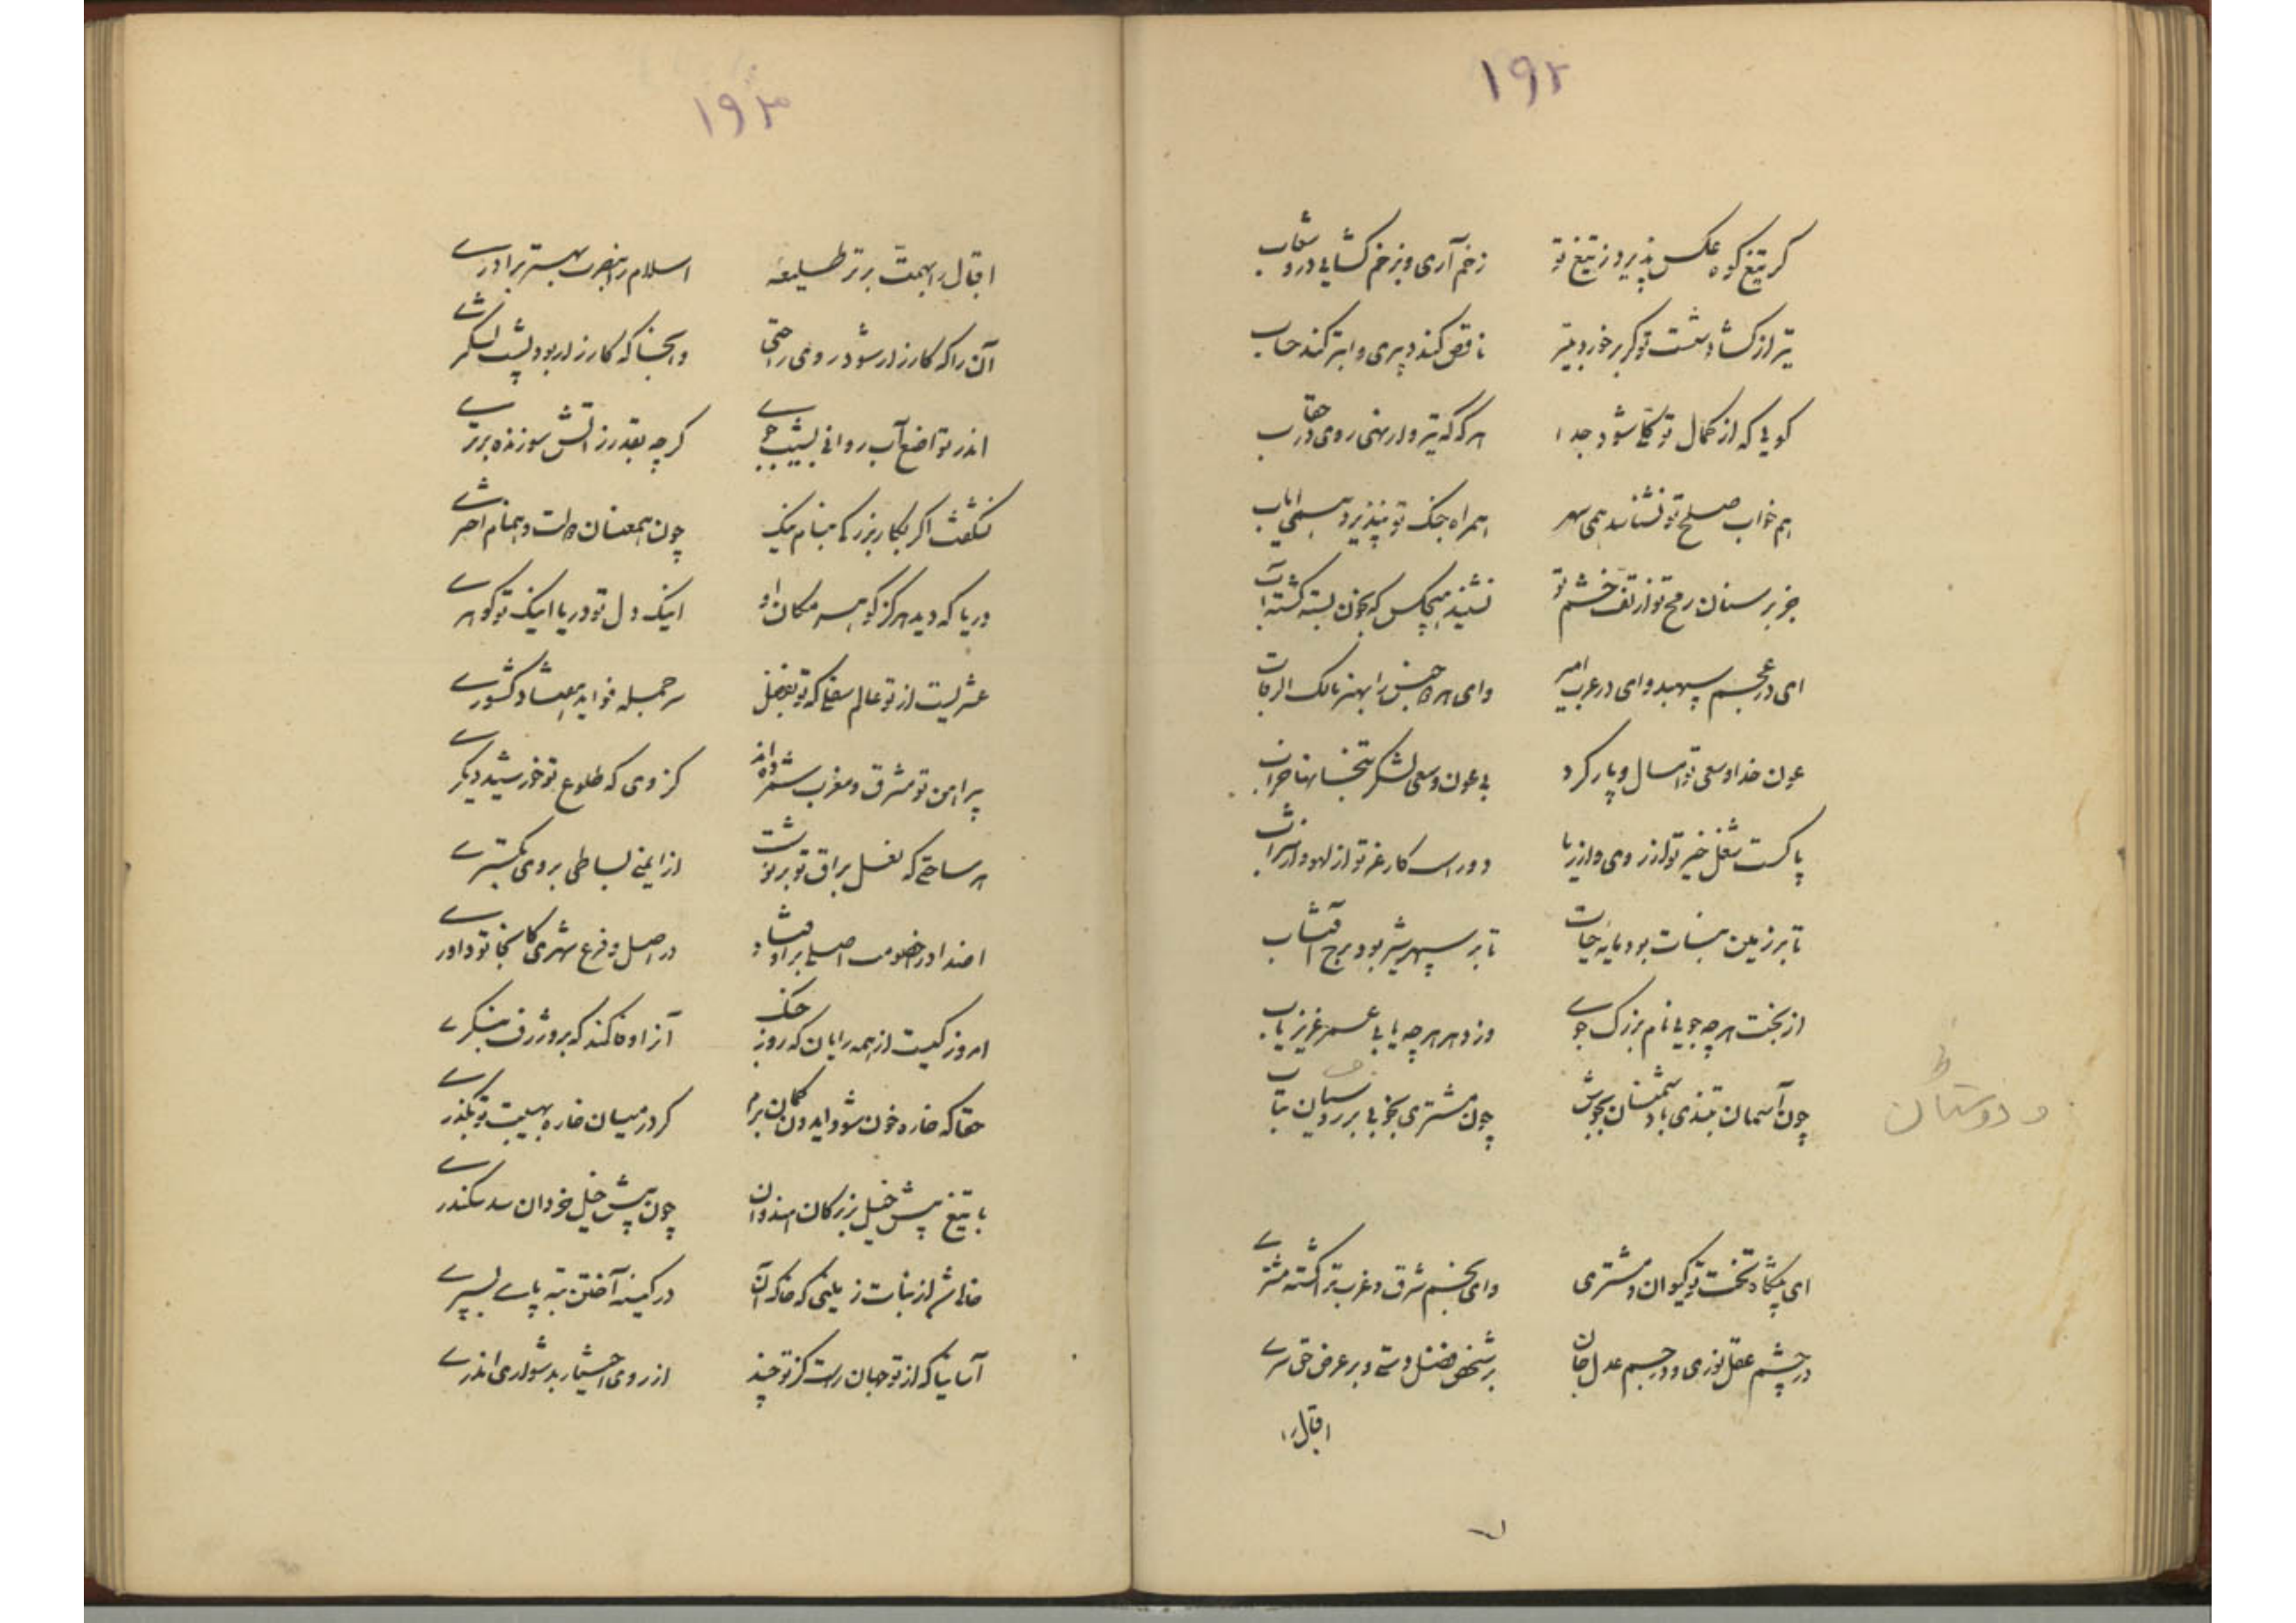 ۱۹۲
گر تیغ کوه عکس پذیرد ز تیغ تو زخم آری و بزخم گشایی درو شعاب
تیر از گشاد شست تو گر برخورد بتیر ناقص کند دبیری و ابتر کند حساب
گویی که از کمال تو جدا هر گه که تیر وار نهی روی در
هم خواب صلح تو نشناسد همی سهر همراه جنک تو نپذیرد همی ایاب
جز بر سنان رمح تو از تف خشم تو نشنید هیچکس که بخون بسته گشت آب
ای در عجم سپهبد و ای در عرب امیر وای هر دو جنس را بهنر مالک الرقاب
عون خدا و سعی تو امسال و پار کرد بی عون و سعی لشکر بتخانها خراب
پاکست شغل خیر تو از روی و از ریا دورست کار عز تو از لهو و از شراب
تا بر زمین نبات بود مایه حیات تا بر سپهر شیر بود برج آفتاب
از بخت هر چه جویی نام بزرگ جوی وز دهر هر چه یابی عمر عزیز یاب
چون آسمان بتندی با دشمنان بکوش چون مشتری بخوبی بر دوستان بتاب
و دوستان
ای پیشگاه تخت تو کیوان و مشتری وای بچشم شرق و غرب ترا گشته مشتری
در چشم عقل نوری و در جسم عدل جان بر شخص فضل دستی و بر عرض حق سری
اقبال را
۱۹۳
اقبال را بهمت برتر طلیعه اسلام را بنصرت بهتر برادری
آن را که کارزار شود روی راحتی وانجا که کارزار بود پشت لشکری
اندر تواضع آب روانی بشیب جوی گرچه بقدر ز آتش سوزنده برتری
نشگفت اگر بکار بزرگی بنام نیک چون همعنان دولت و همنام
دریا که دید هرگز گوهر مکان او اینک دل تو دریا اینک تو گوهری
عشریست از تو عالم سفلی که تو بفضل سر جمله فواید هفتاد کشوری
پیرامن تو مشرق و مغرب شمرده‌اند کز وی که طلوع تو خورشید دیگری
هر ساحتی که نعل براق تو بر نوشت از ایمنی بساطی بر وی بگستری
اضداد را خصومت اصلی بر اوفتاد در اصل و فرع شهری کانجا تو داوری
امروز کیست از همه رایان که روز جنک آزاد کند که برو ژرف بنگری
حقا که خاره خون شود ایدون گمان برم گر در میان خاره بهیبت تو بگذری
با تیغ پیش خیل بزرگان هندوان چون پیش خیل خردان سد سکندری
خالی شد از نبات زمینی که خاک آن در کینه آختن بته پای بسپری
آسانیا که از تو جهان راست گر تو چند از روی اختیار بدشواری اندری